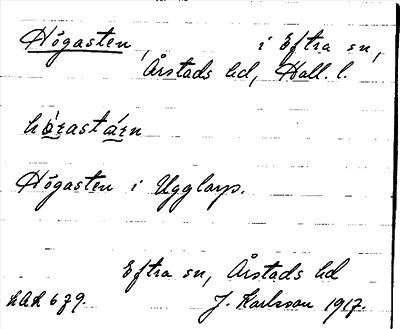 Högasten, i Eftra sn,
Årstads hd, Hall. l.
Högasten i Ugglarp.
Eftra sn, Årstads hd
LAL 679. J. Karlsson 1917.